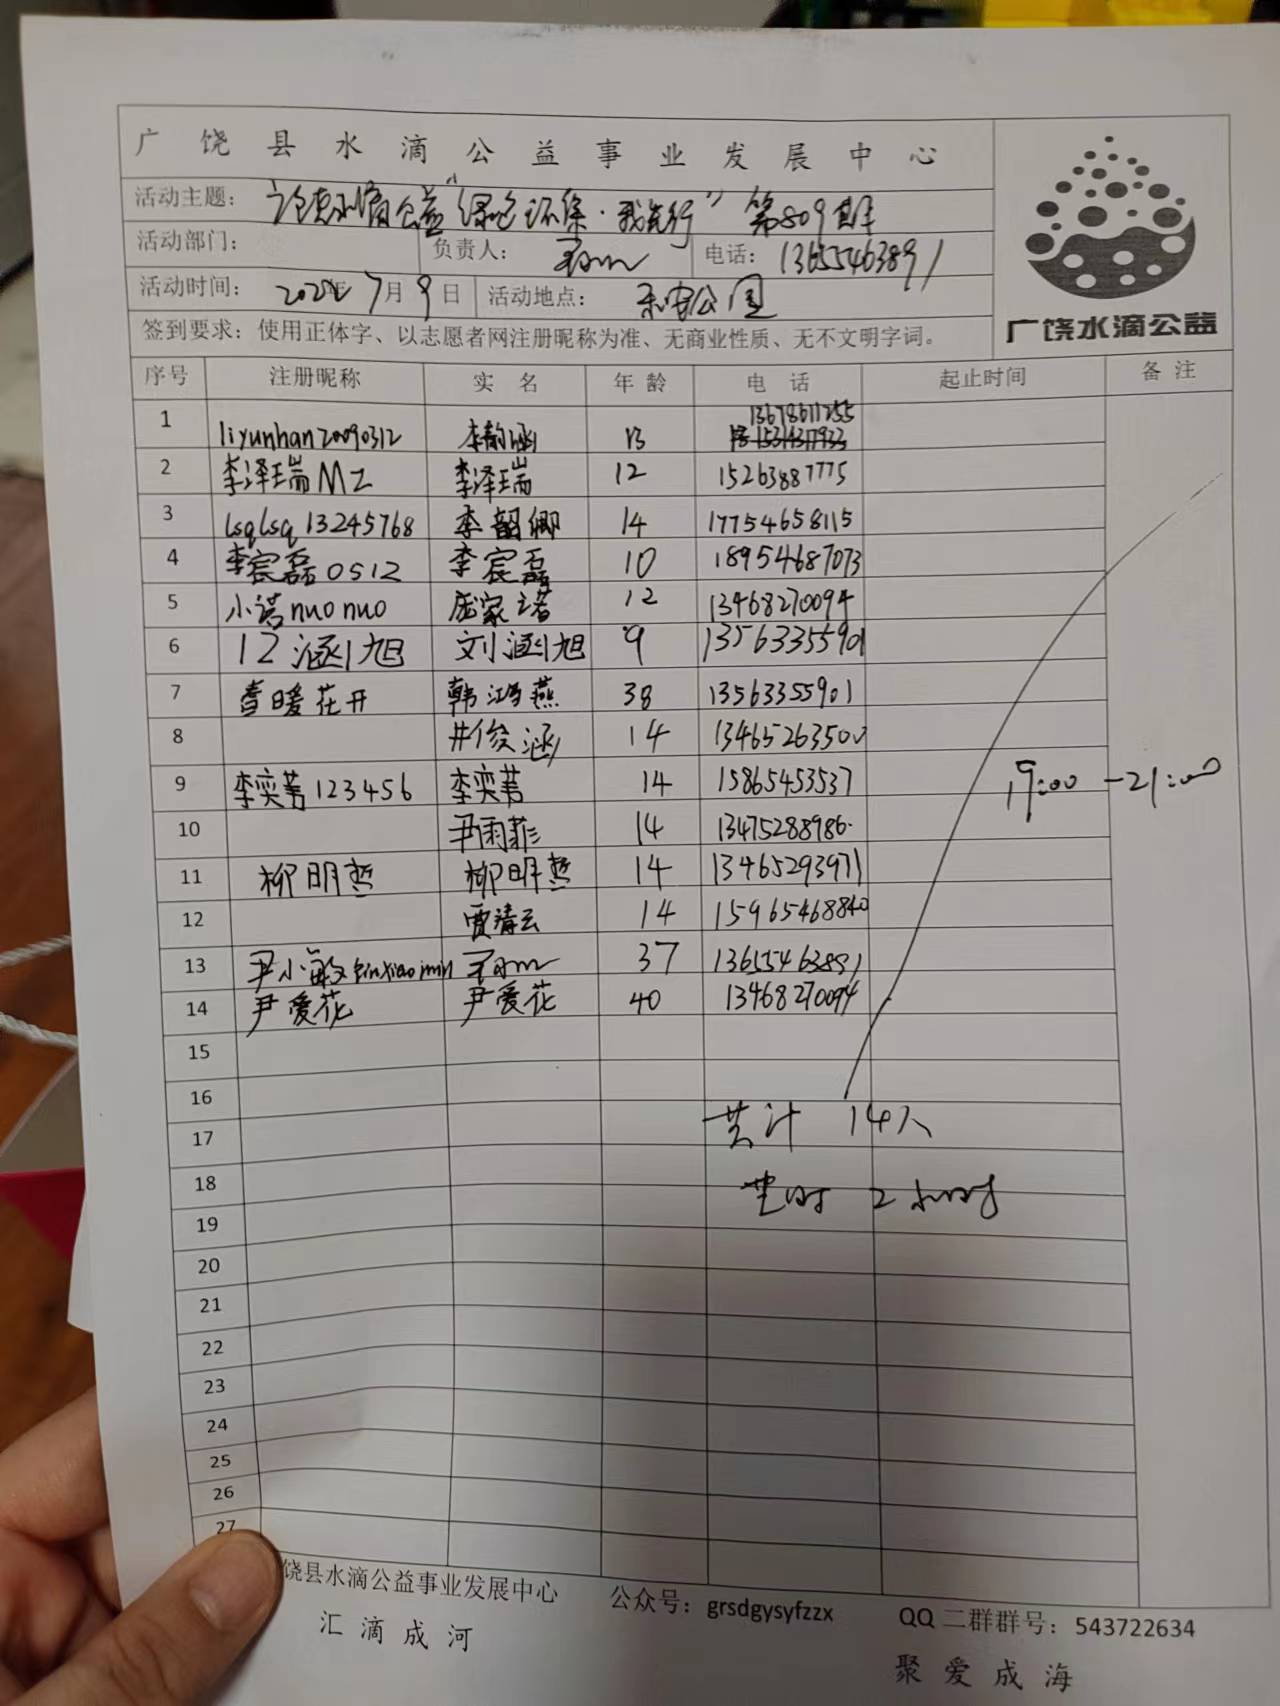 广饶县水滴公益事业发展中心
广饶水滴公益
活动主题: 广饶水滴公益“绿色环保·我先行” 第809期
活动部门: 负责人: 电话: 13655463891
活动时间: 7月9日 活动地点: 乐安公园
签到要求: 使用正体字、以志愿者网注册昵称为准、无商业性质、无不文明字词。
序号 注册昵称 实名 年龄 电话 起止时间 备注
1 liyunhan20090312 李韵涵 13 13678611255
2 李泽瑞MZ 李泽瑞 12 15263887775
3 lsqlsq13245768 李韶卿 14 17754658115
4 李宸磊0512 李宸磊 10 18954687073
5 小诺nuonuo 庞家诺 12 13468270094
6 12涵旭 刘涵旭 9 13563355901
7 春暖花开 韩鸿燕 38 13563355901
8 井俊涵 14 13465263500
9 李奕苇123456 李奕苇 14 15865453537
19:00-21:00
10 尹雨菲 14 13475288986
11 柳明哲 柳明哲 14 13465293971
12 贾清云 14 15965468840
13 尹小敏yinxiaomin 37 13655463891
14 尹爱花 尹爱花 40 13468270094
15
16
17 共计 14人
18
19 共时 2小时
20
21
22
23
24
25
26
27
饶县水滴公益事业发展中心 公众号: grsdgysyfzzx QQ二群群号: 543722634
汇滴成河 聚爱成海